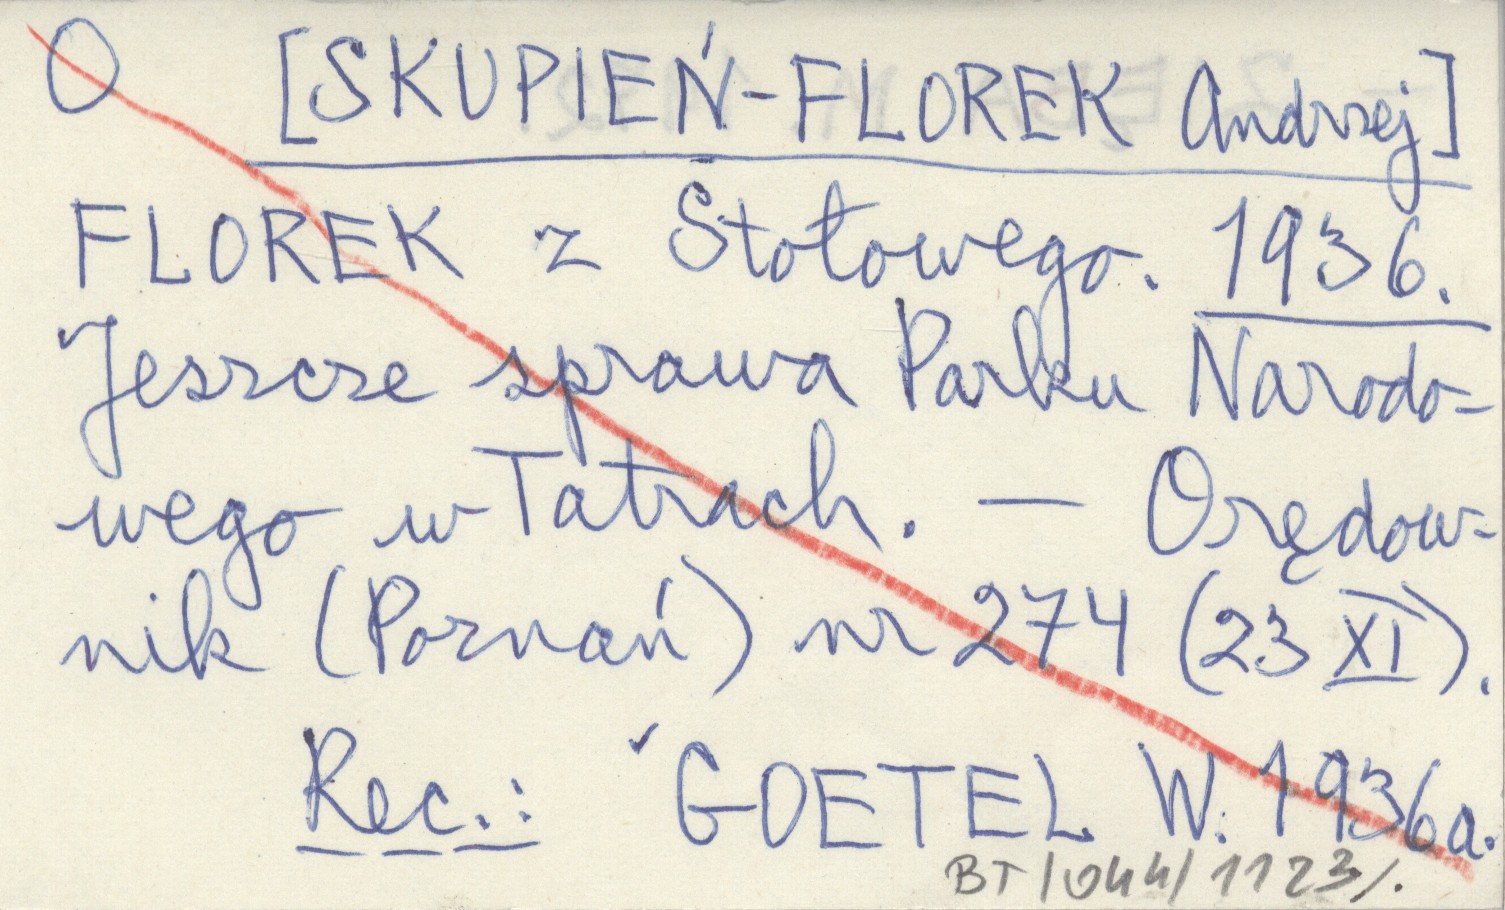 O [SKUPIEŃ-FLOREK Andrzej]
FLOREK z Stołowego. 1936.
Jeszcze sprawa Parku Narodo-
wego w Tatrach. — Orędow-
nik (Poznań) nr 274 (23 XI).
Rec.: ✓ GOETEL W. 1936a.
BT/044/1123/.